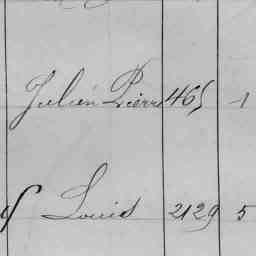 Julien Pierre 465 1
Louis 2129 5